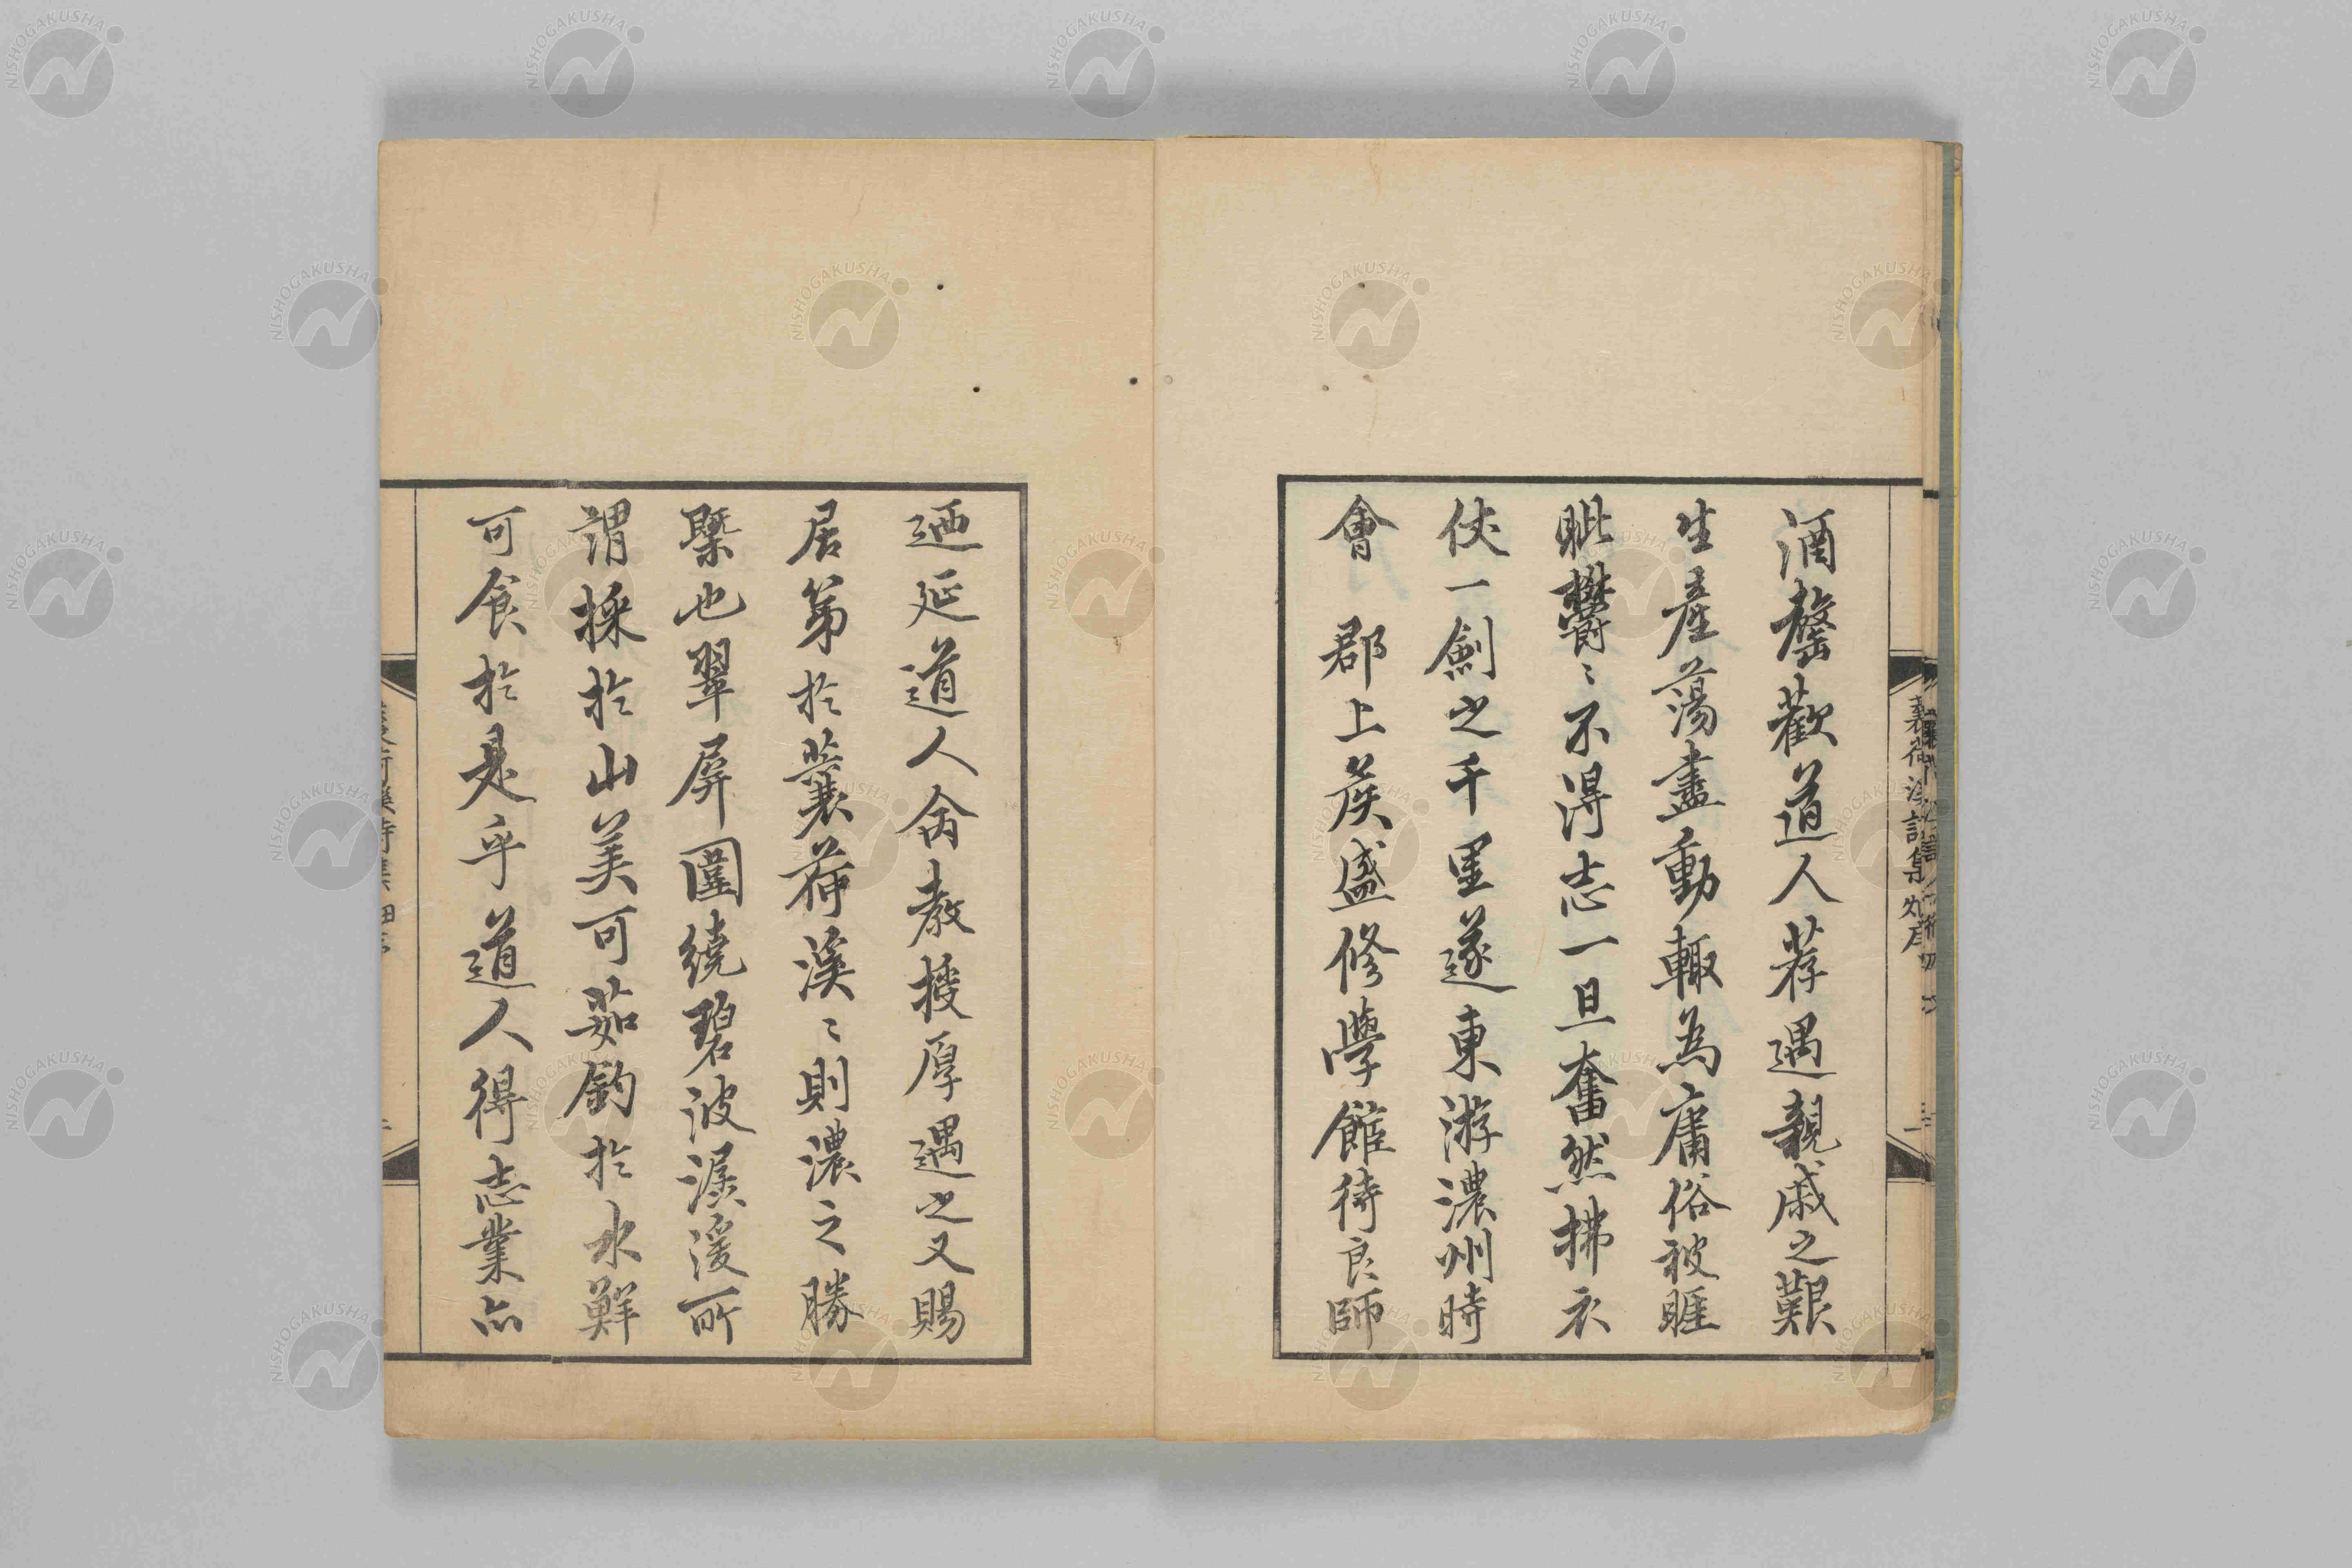 酒罄歡道人荐遇親戚之艱
生產蕩盡動輙為庸俗被睚
眦欝〻不得志一旦奮然拂衣
仗一劍之千里遂東游濃州時
會 郡上侯盛修學館待良師
迺延道人俞教授厚遇之又賜
居第於蓑荷溪〻則濃之勝
槩也翠屏圍繞碧波潺湲所
謂採於山美可茹釣於水鮮
可食於是乎道人得志業亦
NISHOGAKUSHA